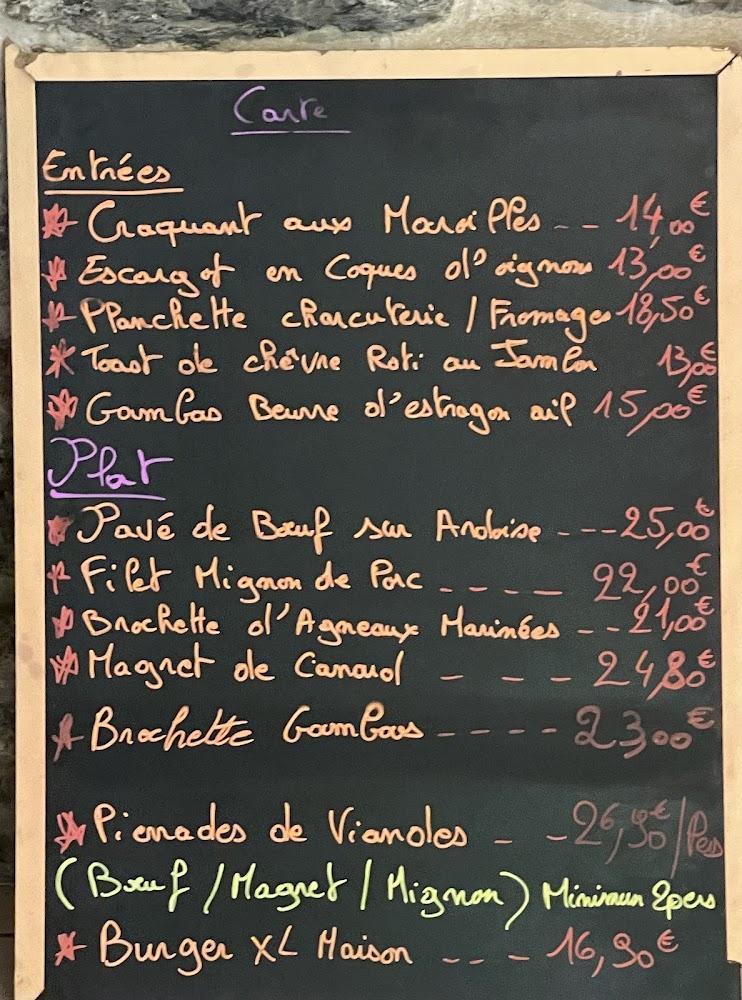 Carte
Entrées
Craquant aux Maroilles -- 14,00€
Escargot en Coques d'oignons 13,00€
Planchette charcuterie / Fromages 18,50€
Toast de chèvre Roti au Jambon 13,00€
Gambas Beurre d'estragon ail 15,00€
Plat
Pavé de Bœuf sur Ardoise --- 25,00€
Filet Mignon de Porc ---- 22,00€
Brochette d'Agneaux Marinées -- 21,00€
Magret de Canard --- 24,80€
Brochette Gambas ---- 23,00€
Pierrades de Viandes -- 26,90€/Pers
(Bœuf / Magret / Mignon) Minimum 2pers
Burger XL Maison --- 16,90€